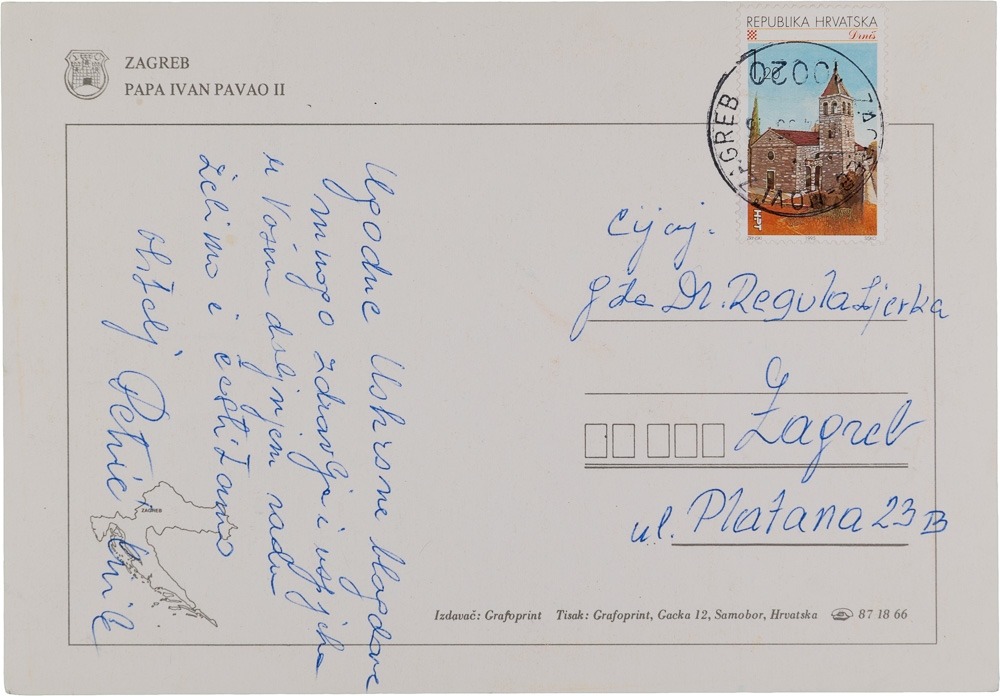 ZAGREB
PAPA IVAN PAVAO II
REPUBLIKA HRVATSKA
Drniš
1,20
HPT
10020 ZAGREB
ZAGREB-NOVI
Ugodne Uskrsne blagdane
mnogo zdravlja i uspjeha
u Vašem daljnjem radu
želimo i čestitamo
obitelj Petric
Cijenj.
gđa Dr. Regula Ljerka
Zagreb
ul. Platana 23 B
ZAGREB
Izdavač: Grafoprint Tisak: Grafoprint, Gacka 12, Samobor, Hrvatska ☎ 87 18 66